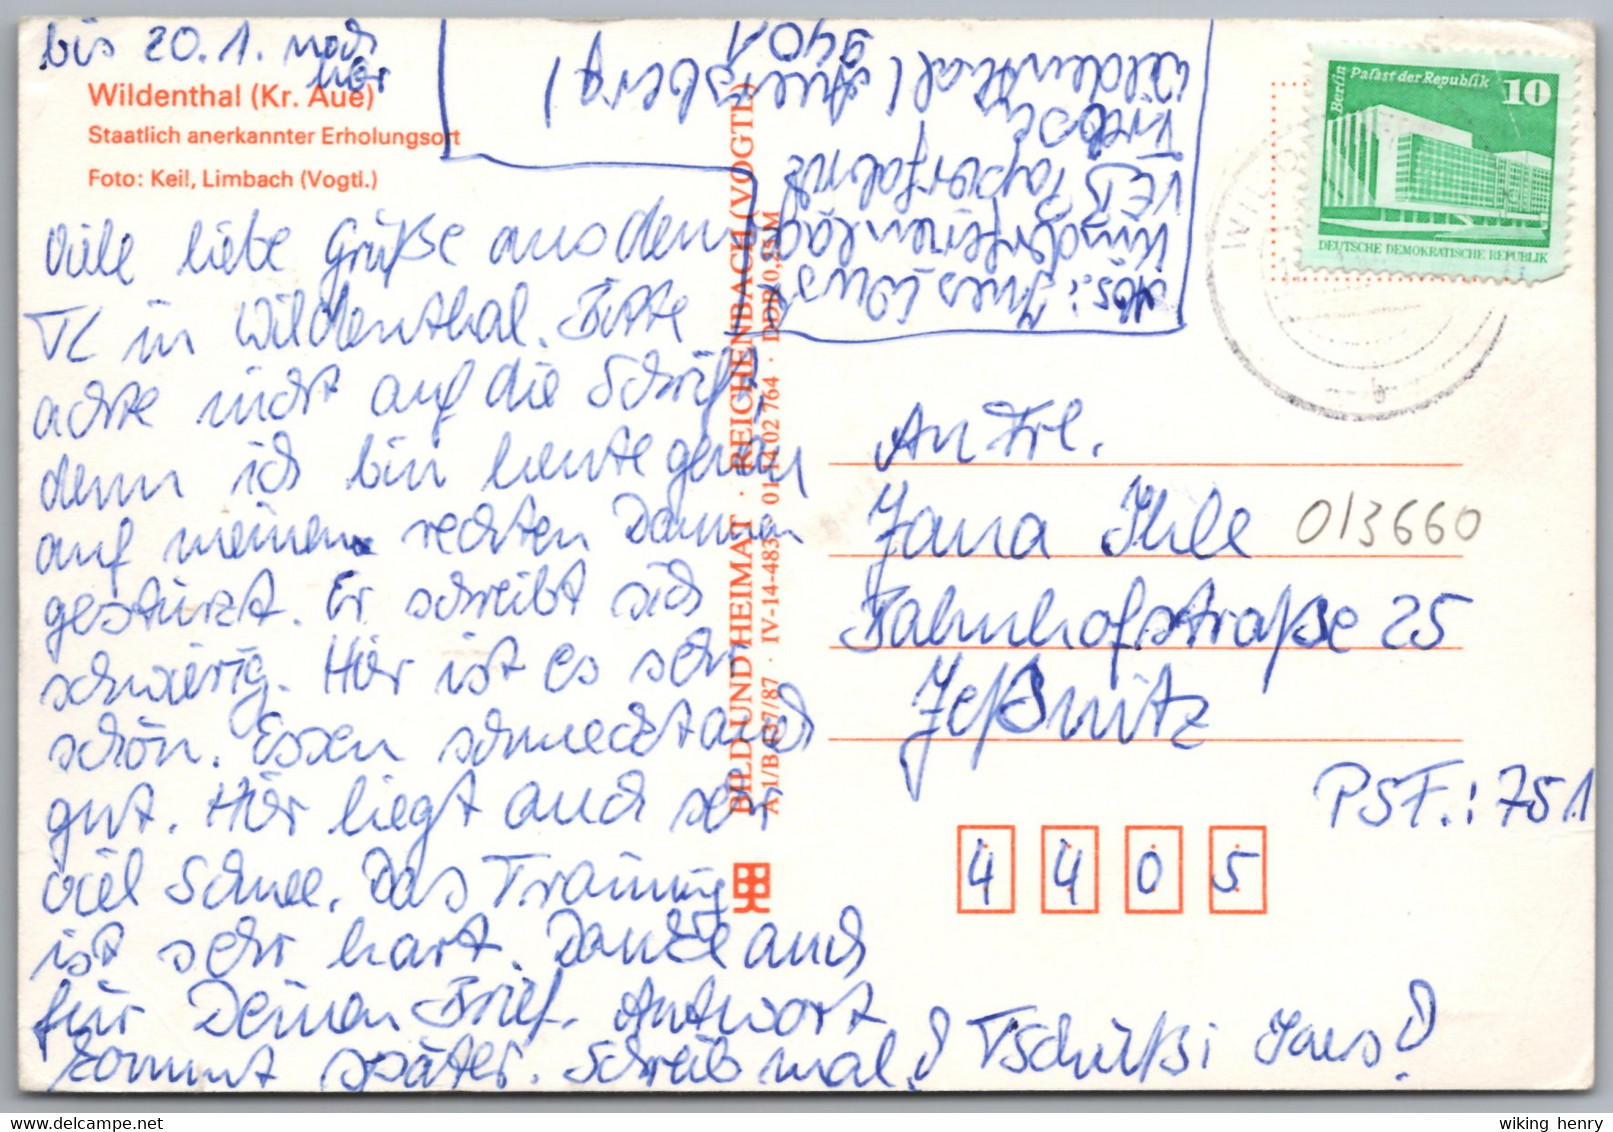 bis 20.1. noch
hier
Wildenthal (Kr. Aue)
Staatlich anerkannter Erholungsort
Foto: Keil, Limbach (Vogtl.)
Viele liebe Grüße aus dem
TL in Wildenthal. Bitte
achte nicht auf die Schrift,
denn ich bin heute genau
auf meinen rechten Daumen
gestürzt. Er schreibt sich
schwierig. Hier ist es sehr
schön. Essen schmeckt auch
gut. Hier liegt auch sehr
viel Schnee. Das Training
ist sehr hart. Danke auch
für Deinen Brief. Antwort
kommt später. Schreib mal! Tschüßi Ines!
Abs.: Ines
Kinderferienlag
VEB Papierfabrik
Wildenthal (Auersberg)
9401
BILD UND HEIMAT · REICHENBACH (VOGTL)
A 1/B 637/87 · IV-14-483 · 01 14 02 764 · DDR 0,25 M
Berlin
Palast der Republik
10
DEUTSCHE DEMOKRATISCHE REPUBLIK
An Frl.
Jana Ihle
013660
Bahnhofstraße 25
Jeßnitz
PSF.: 751
4 4 0 5
wiking henry